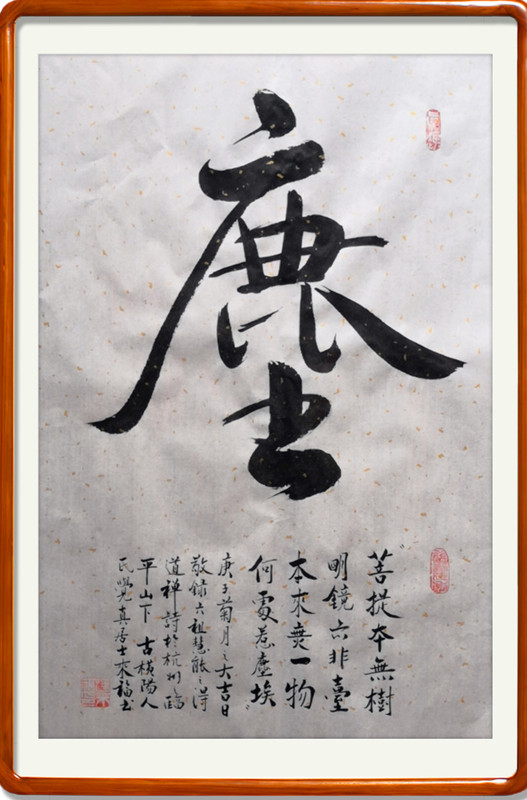 塵
菩提本無樹
明鏡亦非臺
本來無一物
何處惹塵埃
庚子菊月之大吉日
敬録六祖慧能之得
道禅詩於杭州之臨
平山下 古橫陽人
覺真居士來福书